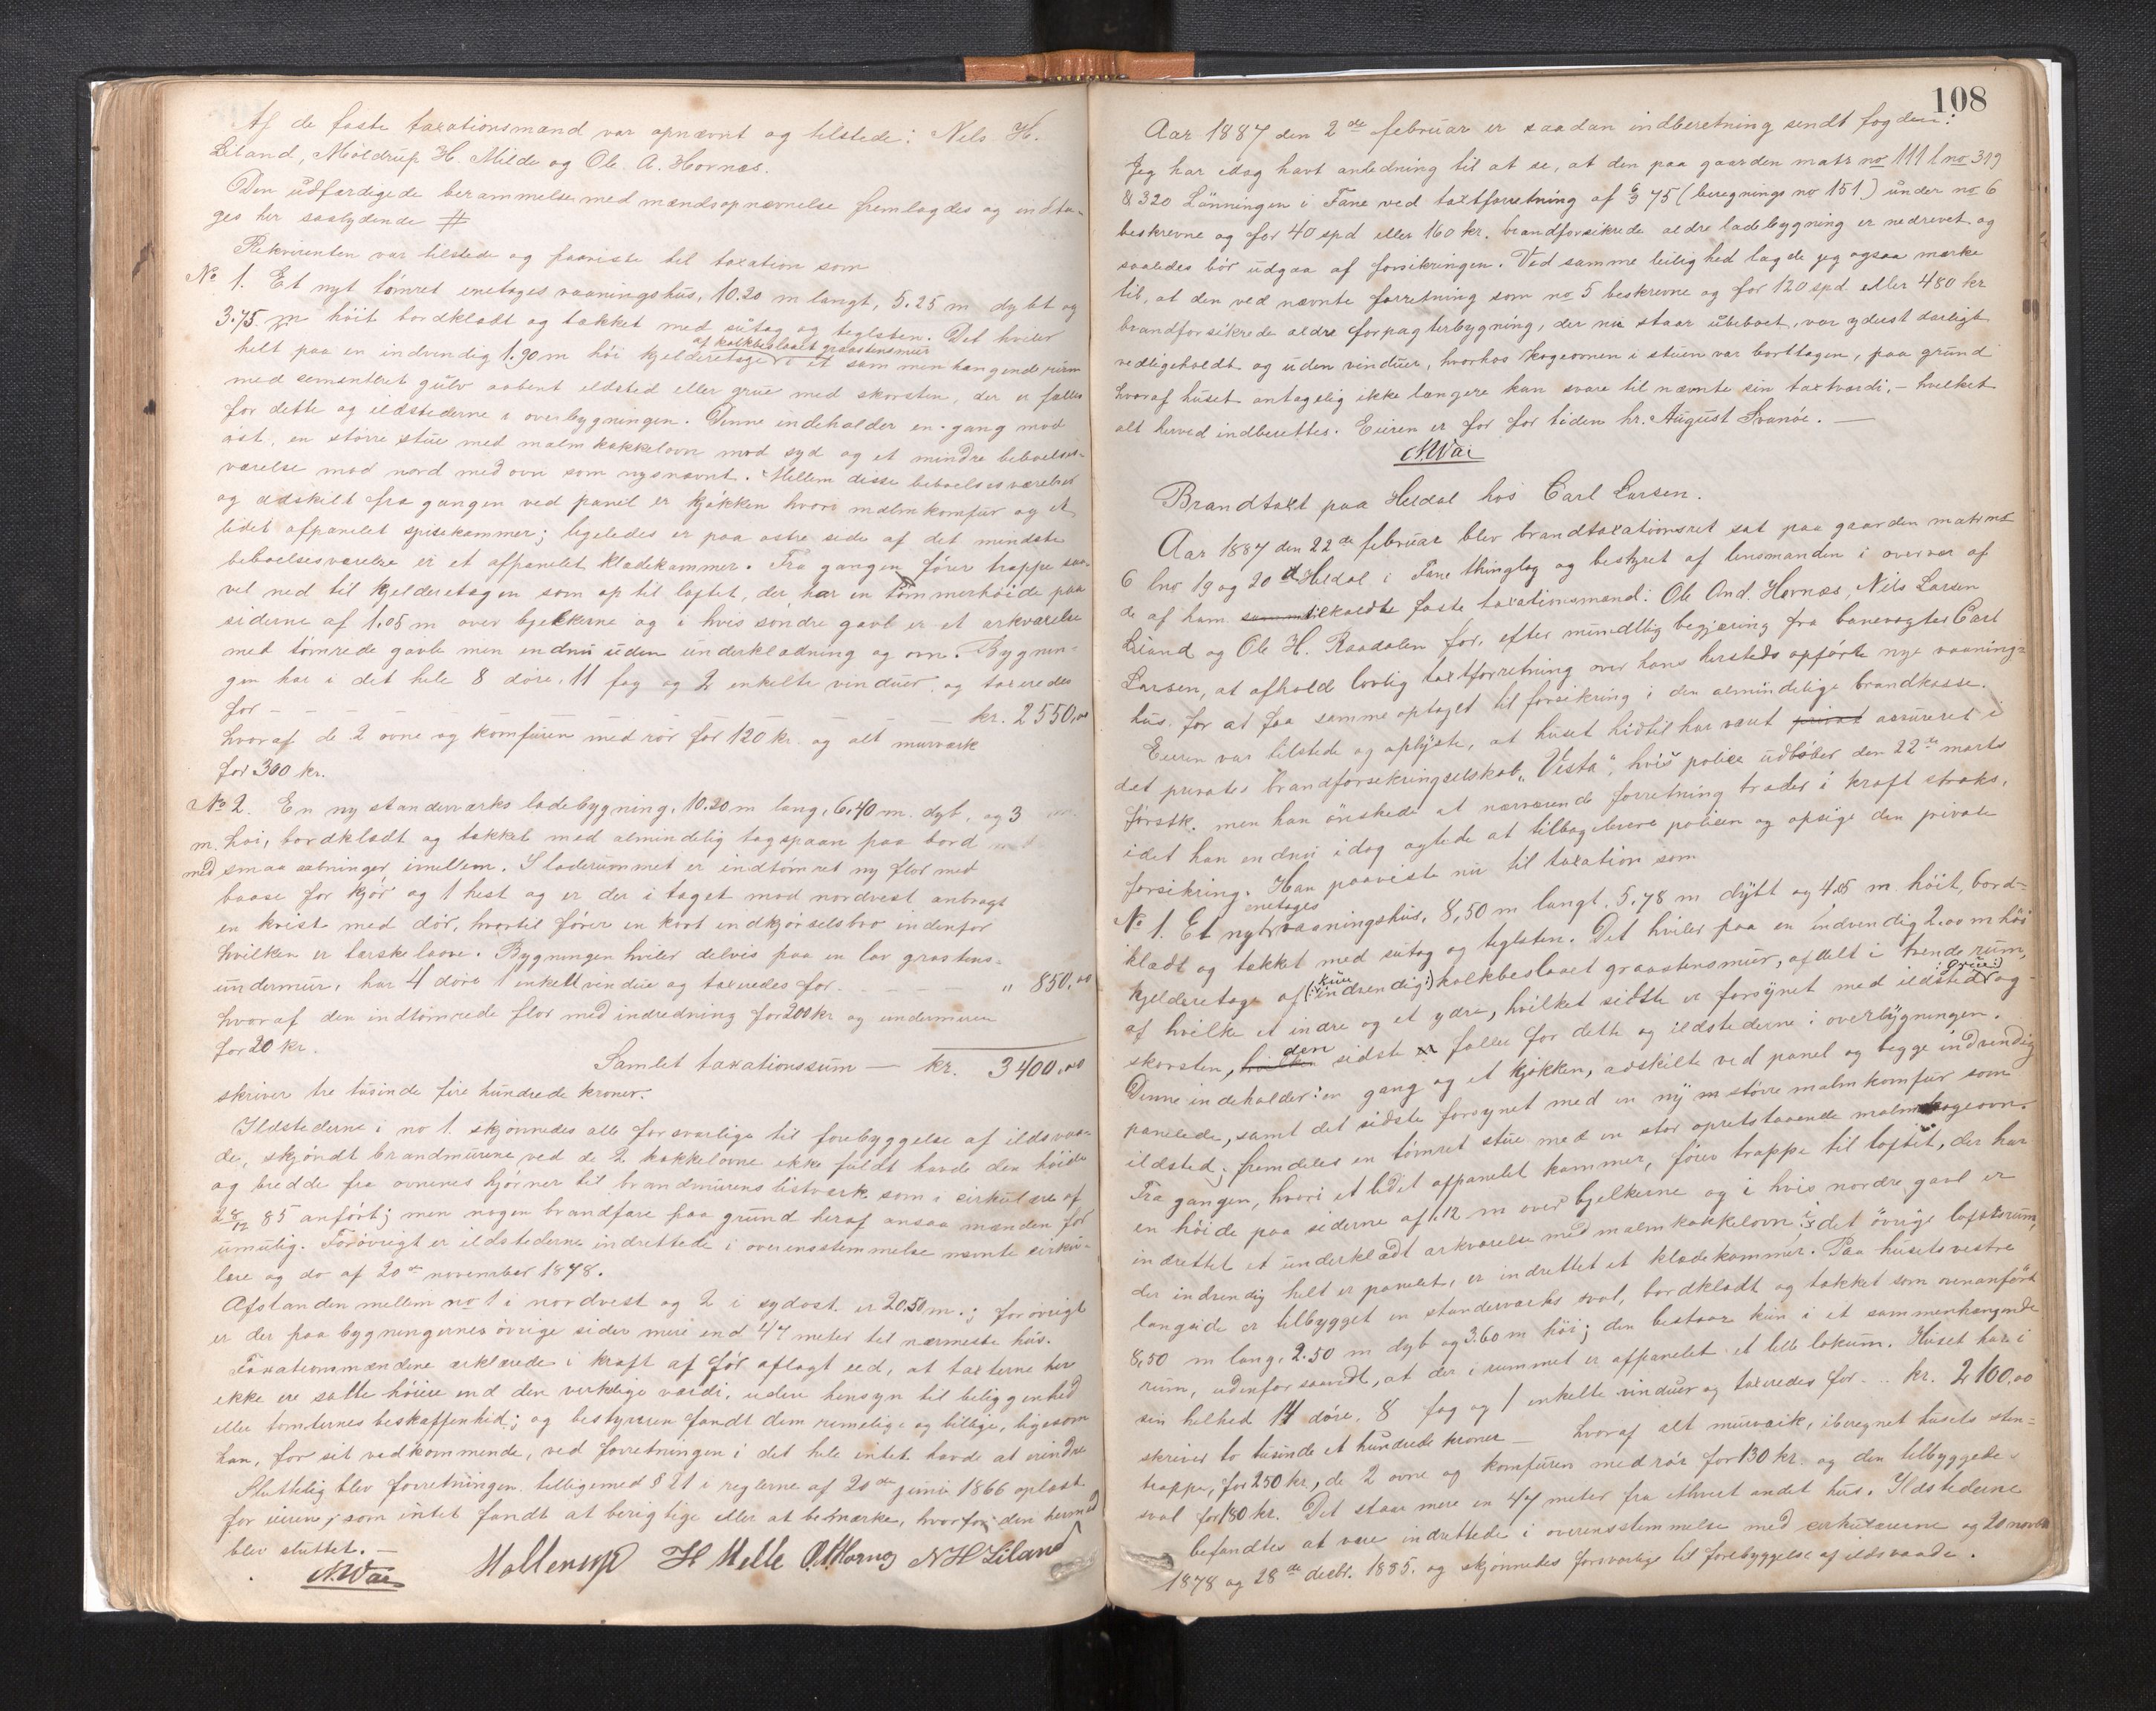 Af de faste taxationsmænd var opnævnt og tilstede: Nels H.
Liland, Möldrup H. Milde og Ole A. Hornæs.
Den udfærdigede berammelse med mandsopnævnelse fremlagdes og indta-
ges her saalydende #
Rekvirenten var tilstede og paaviste til taxation som
No 1. Et nyt tömret enetages vaaningshus, 10.20 m langt, 5.25 m dybt og
3.75 m höit bordklædt og tækket med sutag og teglsten. Det hviler
af kalkbeslaaet graastensmur
helt paa en indvendig 1.90 m höi kjelderetage i et sammenhangende rum
med sementeret gulv aabent ildsted eller grue med skorsten, der er fælles
for dette og ildstederne i overbygningen. Denne indeholder en gang mod
öst, en större stue med malm kakkelovn mod syd og et mindre beboelses-
værelse mod nord med ovn som nysnævnt. Mellem disse beboelsesværelser
og adskilt fra gangen ved panel er kjökken hvori malmkomfur og et
lidet afpanelet spisekammer; ligeledes er paa östre side af det mindste
beboelsesværelse er et afpanelet klædekammer. Fra gangen förer trappe saa-
vel ned til kjelderetagen som op til loftet, der har en tömmerhöide paa
siderne af 1.05 m over bjelkerne og i hvis söndre gavl er et arkværelse
med tömrede gavle men endnu uden underklædning og ovn. Bygnin-
gen har i det hele 8 döre, 11 fag og 2 enkelte vinduer og taxeredes
for — — — — — — — — kr. 2550,00
hvoraf de 2 ovne og komfuren med rör for 120 kr. og alt murværk
for 300 kr.
No 2. En ny standerværks ladebygning, 10.20 m lang, 6,40 m. dyb, og 3
m. höi, bordklædt og tækket med almindelig tagspaan paa bord
med smaa aabninger imellem. I laderummet er indtömret ny flor med
baase for kjör og 1 hest og er der i taget mod nordvest anbragt
en kvist med dör, hvortil förer en kort indkjörselsbro indenfor
hvilken er tærskelaave. Bygningen hviler delvis paa en lav graastens-
undermur, har 4 döre 1 enkelt vindue og taxeredes for — — — — " 850,00
hvoraf den indtömrede flor med indredning for 200 kr og undermuren
for 20 kr.
Samlet taxationssum — kr. 3400,00
skriver tre tusinde fire hundrede kroner.
Ildstederne i no 1 skjönnedes alle forsvarlige til forebyggelse af ildsvaa-
de, skjöndt brandmurene ved de 2 kakkelovne ikke fuldt havde den höide
og bredde fra ovnenes hjörner til brandmurens listværk som i cirkulære af
28/12 85 anfört; men nogen brandfare paa grund heraf ansaa mænden for
umulig. Forövrigt er ildstederne indrettede i overensstemmelse nævnte cirku-
lære og do af 20de november 1878.
Afstanden mellem no 1 i nordvest og 2 i sydost er 20.50 m.; for övrigt
er der paa bygningernes övrige sider mere end 47 meter til nærmeste hus.
Taxationsmændene erklærede i kraft af för aflagt eed, at taxterne her
ikke ere satte höiere end den virkelige værdi, uden hensyn til beliggenhed
eller tomternes beskaffenhed; og bestyreren fandt dem rimelige og billige, ligesom
han, for sit vedkommende, ved forretningen i det hele intet havde at erindre
Sluttelig blev forretningen tilligemed § 21 i reglerne af 20de juni 1866 oplæst
for eieren, som intet fandt at berigtige eller at bemærke, hvorfor den hermed
blev sluttet. —
Mollerup H Melle O.A.Hornes N H Liland
108
Aar 1887 den 2de februar er saadan indberetning sendt fogden:
Jeg har idag havt anledning til at se, at den paa gaarden matr no 111 l no 319
& 320 Lönningen i Fane ved taxtforretning af 6/3 75 (beregnings no 151) under no 6
beskrevne og for 40 spd eller 160 kr. brandforsikrede ældre ladebygning er nedrevet og
saaledes bör udgaa af forsikringen. Ved samme leilighed lagde jeg ogsaa mærke
til, at den ved nævnte forretning som no 5 beskrevne og for 120 spd eller 480 kr
brandforsikrede ældre forpagterbygning, der nu staar ubeboet, var yderst darligt
vedligeholdt og uden vinduer, hvorhos kogeovnen i stuen var borttagen, paa grund
hvoraf huset antagelig ikke længere kan svare til nævnte sin taxtværdi, — hvilket
alt herved indberettes. Eieren er for for tiden hr. August Svanöe. —
Brandtaxt paa Heldal hos Carl Larsen.
Aar 1887 den 22de februar blev brandtaxationsret sat paa gaarden matr no
6 lno 19 og 20 Heldal i Fane thinglag og bestyret af lensmanden i overvær af
de af ham tilkaldte faste taxationsmænd: Ole And. Hornæs, Nils Larsen
Liland og Ole H. Raadalen for, efter mundtlig begjæring fra banevogter Carl
Larsen, at afhold lovlig taxtforretning over hans hersteds opförte nye vaaning-
hus for at faa samme optaget til forsikring i den almindelige brandkasse.
Eieren var tilstede og oplyste, at huset hidtil har været privat assureret i
det private brandforsikringselskab "Vesta", hvis police udlöber den 22de marts
förstk. men han önskede at nærværende forretning træder i kraft straks,
idet han endnu idag agtede at tilbagelevere policen og opsige den private
forsikring. Han paaviste nu til taxation som
enetages
No 1. Et nyt vaaningshus, 8,50 m langt, 5.78 m dybt og 4.05 m. höit, bord-
klædt og tækket med sutag og teglsten. Det hviler paa en indvendig 2.00 m höi
kjelderetage af (: kun indvendig :) kalkbeslaaet graastensmur, afdelt i tvende rum,
af hvilke et indre og et ydre, hvilket sidste er forsynet med ildsted (: grue :) og
skorsten, den sidste fælles for dette og ildstederne i overbygningen.
Denne indeholder: en gang og et kjökken, adskilte ved panel og begge indvendig
panelede, samt det sidste forsynet med en ny större malm komfur som
ildsted; fremdeles en tömret stue med en stor opretstaaende malmkogeovn.
Fra gangen, hvori et lidet afpanelet kammer, förer trappe til loftet, der har
en höide paa siderne af 1.12 m over bjelkerne og i hvis nordre gavl er
indrettet et underklædt arkværelse med malmkakkelovn; i det övrige loftsrum,
der indvendig helt er panelet, er indrettet et klædekammer. Paa husets vestre
langside er tilbygget en standerværks sval, bordklædt og tækket som ovenanfört
8,50 m lang, 2.50 m dyb og 3.60 m höi; den bestaar kun i et sammenhængende
rum, udenfor saavidt, at der i rummet er afpanelet et lille lokum. Huset har i
sin helhed 14 döre, 8 fag og 1 enkelte vinduer og taxeredes for .. kr. 2100.00
skriver to tusinde et hundrede kroner — hvoraf alt murværk, iberegnet husets sten-
trappe, for 250 kr, de 2 ovne og komfuren med rör for 130 kr. og den tilbyggede
sval for 180 kr. Det staar mere en 47 meter fra ethvert andet hus. Ildstederne
befandtes at være indrettede i overensstemmelse med cirkulærerne og 20 novbr
1878 og 28de decbr. 1885. og skjönnedes forsvarlige til forebyggelse af ildsvaade.